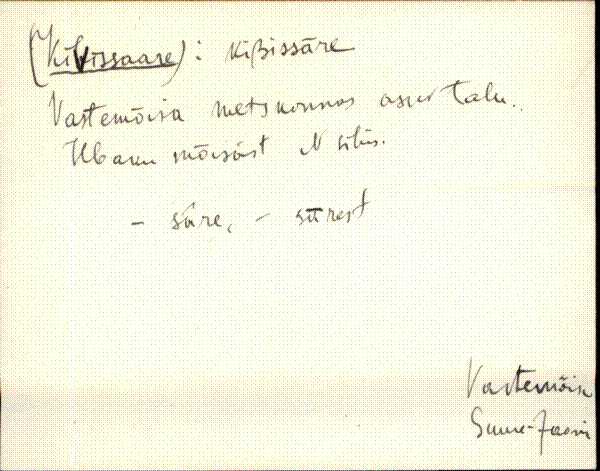 (Kivissaare) : kiβissāre
Vastemõisa metskonnas asuv talu.
Ubaku mõisast N sihis.
- sāre, - sārest
Vastemõisa
Suure-Jaani